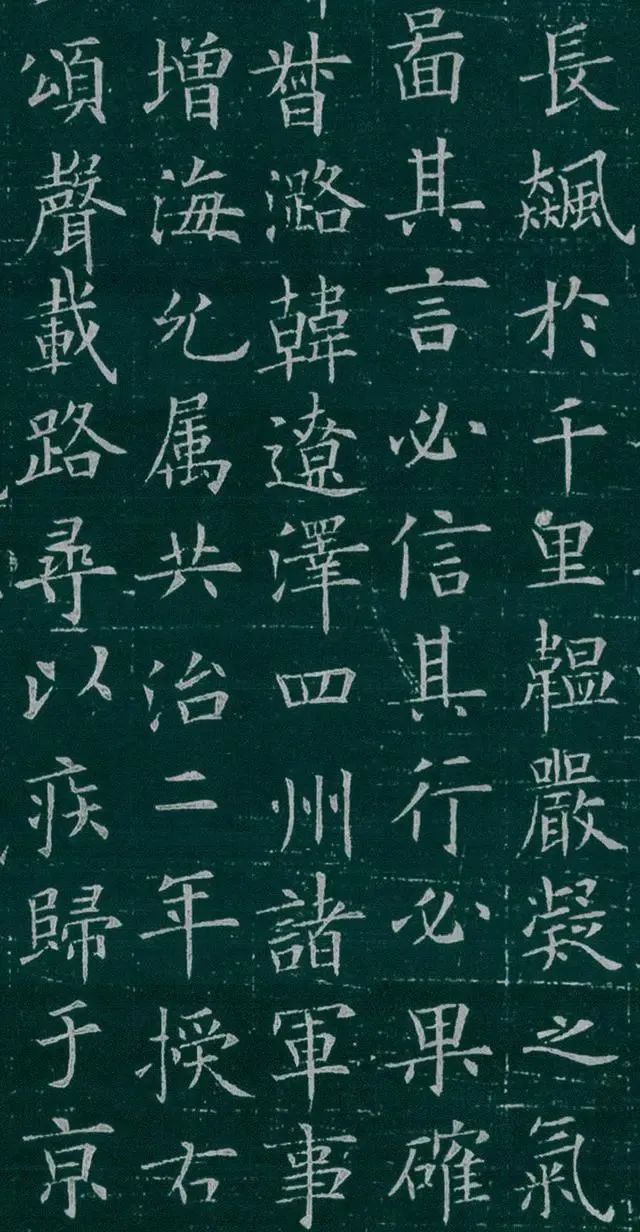 長飆於千里韞嚴凝之氣
啚其言必信其行必果確
督潞韓遼澤四州諸軍事
增海允属共治二年授右
頌聲載路尋以疾歸于京